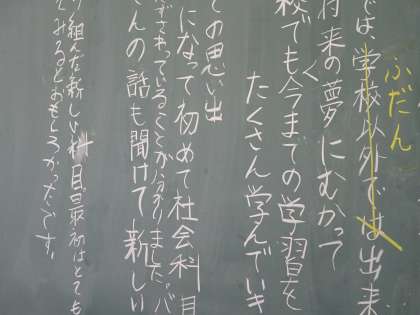 ふだん
では、学校以外では出来
将来の夢にむかって
く
校でも今までの学習を
たくさん学んでいき
ての思い出
になって初めて社会科目
されていることが分かりました。バ
さんの話も聞けて新しい
り組んだ新しい科目。最初はとても
てみるとおもしろかったです。